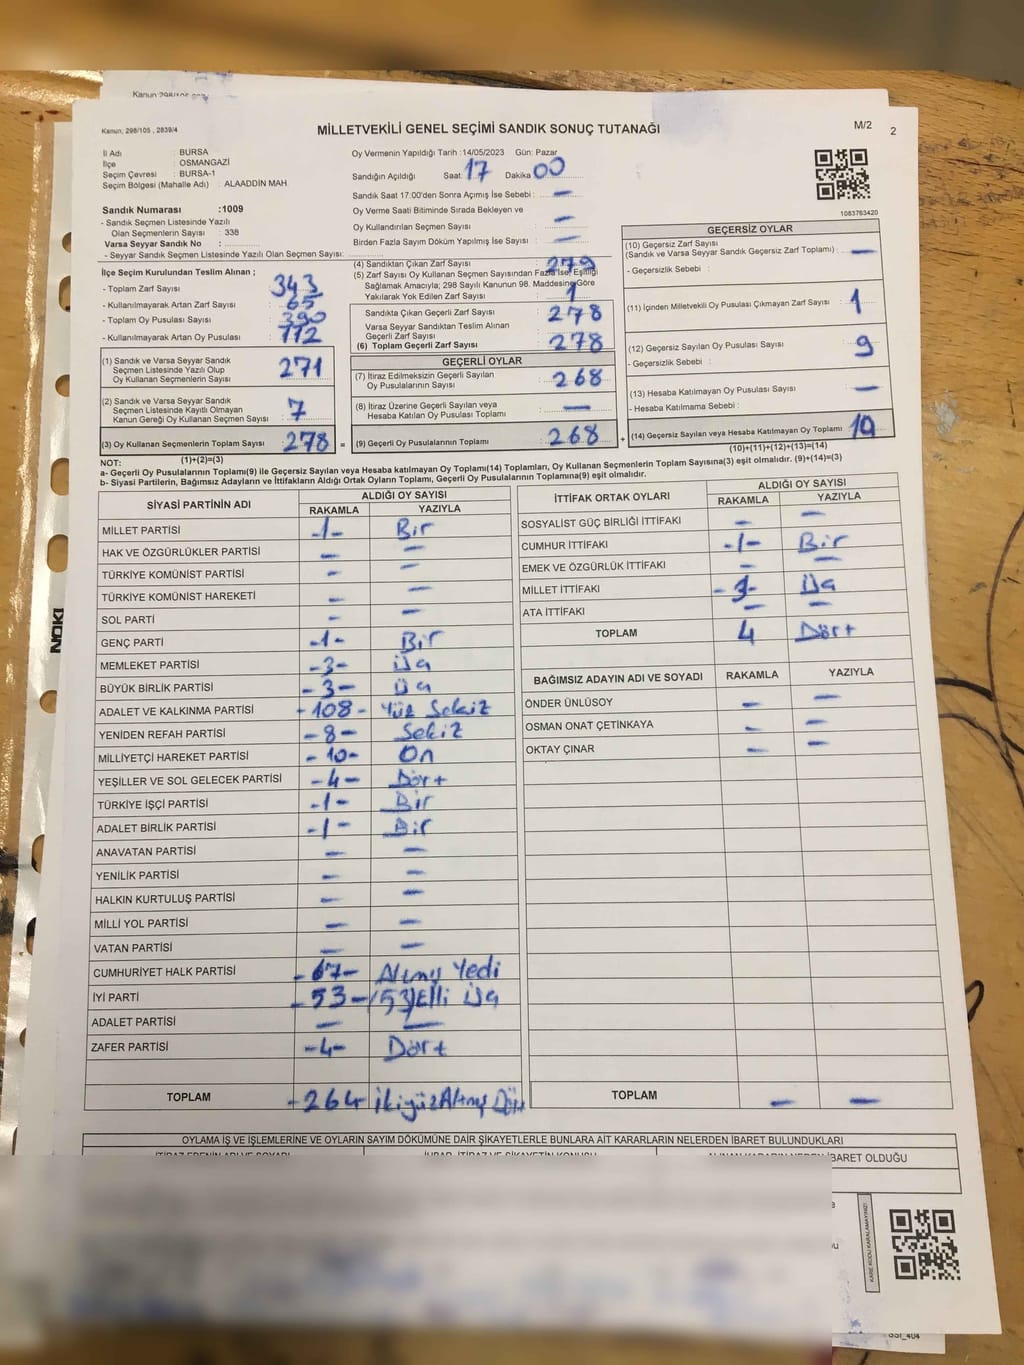 Kanun, 298/105 , 2839/4
MİLLETVEKİLİ GENEL SEÇİMİ SANDIK SONUÇ TUTANAĞI
M/2
2
İl Adı : BURSA
İlçe : OSMANGAZİ
Seçim Çevresi : BURSA-1
Seçim Bölgesi (Mahalle Adı) : ALAADDİN MAH
Oy Vermenin Yapıldığı Tarih :14/05/2023 Gün: Pazar
Sandığın Açıldığı Saat: 17 Dakika 00
Sandık Saat 17:00'den Sonra Açımış İse Sebebi : —
Oy Verme Saati Bitiminde Sırada Bekleyen ve
Oy Kullandırılan Seçmen Sayısı : —
Birden Fazla Sayım Döküm Yapılmış İse Sayısı : —
1083763420
Sandık Numarası :1009
- Sandık Seçmen Listesinde Yazılı
Olan Seçmenlerin Sayısı : 338
Varsa Seyyar Sandık No :
- Seyyar Sandık Seçmen Listesinde Yazılı Olan Seçmen Sayısı:
İlçe Seçim Kurulundan Teslim Alınan ;
- Toplam Zarf Sayısı : 343
- Kullanılmayarak Artan Zarf Sayısı : 65
- Toplam Oy Pusulası Sayısı : 390
- Kullanılmayarak Artan Oy Pusulası : 112
(1) Sandık ve Varsa Seyyar Sandık
Seçmen Listesinde Yazılı Olup
Oy Kullanan Seçmenlerin Sayısı : 271
(2) Sandık ve Varsa Seyyar Sandık
Seçmen Listesinde Kayıtlı Olmayan
Kanun Gereği Oy Kullanan Seçmen Sayısı : 7
(3) Oy Kullanan Seçmenlerin Toplam Sayısı : 278 =
(1)+(2)=(3)
(4) Sandıktan Çıkan Zarf Sayısı : 279
(5) Zarf Sayısı Oy Kullanan Seçmen Sayısından Fazla İse, Eşitliği
Sağlamak Amacıyla; 298 Sayılı Kanunun 98. Maddesine Göre
Yakılarak Yok Edilen Zarf Sayısı : 1
Sandıkta Çıkan Geçerli Zarf Sayısı : 278
Varsa Seyyar Sandıktan Teslim Alınan
Geçerli Zarf Sayısı :
(6) Toplam Geçerli Zarf Sayısı : 278
GEÇERLİ OYLAR
(7) İtiraz Edilmeksizin Geçerli Sayılan
Oy Pusulalarının Sayısı : 268
(8) İtiraz Üzerine Geçerli Sayılan veya
Hesaba Katılan Oy Pusulası Toplamı : —
(9) Geçerli Oy Pusulalarının Toplamı : 268 +
GEÇERSİZ OYLAR
(10) Geçersiz Zarf Sayısı
(Sandık ve Varsa Seyyar Sandık Geçersiz Zarf Toplamı) : —
- Geçersizlik Sebebi :
(11) İçinden Milletvekili Oy Pusulası Çıkmayan Zarf Sayısı : 1
(12) Geçersiz Sayılan Oy Pusulası Sayısı : 9
- Geçersizlik Sebebi :
(13) Hesaba Katılmayan Oy Pusulası Sayısı : —
- Hesaba Katılmama Sebebi :
(14) Geçersiz Sayılan veya Hesaba Katılmayan Oy Toplamı 10
(10)+(11)+(12)+(13)=(14)
NOT:
a- Geçerli Oy Pusulalarının Toplamı(9) ile Geçersiz Sayılan veya Hesaba katılmayan Oy Toplamı(14) Toplamları, Oy Kullanan Seçmenlerin Toplam Sayısına(3) eşit olmalıdır. (9)+(14)=(3)
b- Siyasi Partilerin, Bağımsız Adayların ve İttifakların Aldığı Ortak Oyların Toplamı, Geçerli Oy Pusulalarının Toplamına(9) eşit olmalıdır.
SİYASİ PARTİNİN ADI ALDIĞI OY SAYISI
RAKAMLA YAZIYLA
MİLLET PARTİSİ -1- Bir
HAK VE ÖZGÜRLÜKLER PARTİSİ — —
TÜRKİYE KOMÜNİST PARTİSİ — —
TÜRKİYE KOMÜNİST HAREKETİ — —
SOL PARTİ — —
GENÇ PARTİ -1- Bir
MEMLEKET PARTİSİ -3- Üç
BÜYÜK BİRLİK PARTİSİ -3- Üç
ADALET VE KALKINMA PARTİSİ -108- Yüz Sekiz
YENİDEN REFAH PARTİSİ -8- Sekiz
MİLLİYETÇİ HAREKET PARTİSİ -10- On
YEŞİLLER VE SOL GELECEK PARTİSİ -4- Dört
TÜRKİYE İŞÇİ PARTİSİ -1- Bir
ADALET BİRLİK PARTİSİ -1- Bir
ANAVATAN PARTİSİ — —
YENİLİK PARTİSİ — —
HALKIN KURTULUŞ PARTİSİ — —
MİLLİ YOL PARTİSİ — —
VATAN PARTİSİ — —
CUMHURİYET HALK PARTİSİ -67- Altmış Yedi
İYİ PARTİ -53- (53) Elli Üç
ADALET PARTİSİ — —
ZAFER PARTİSİ -4- Dört
TOPLAM -264 İkiyüz Altmış Dört
İTTİFAK ORTAK OYLARI ALDIĞI OY SAYISI
RAKAMLA YAZIYLA
SOSYALİST GÜÇ BİRLİĞİ İTTİFAKI — —
CUMHUR İTTİFAKI -1- Bir
EMEK VE ÖZGÜRLÜK İTTİFAKI — —
MİLLET İTTİFAKI -3- Üç
ATA İTTİFAKI — —
TOPLAM 4 Dört
BAĞIMSIZ ADAYIN ADI VE SOYADI RAKAMLA YAZIYLA
ÖNDER ÜNLÜSOY — —
OSMAN ONAT ÇETİNKAYA — —
OKTAY ÇINAR — —
TOPLAM — —
OYLAMA İŞ VE İŞLEMLERİNE VE OYLARIN SAYIM DÖKÜMÜNE DAİR ŞİKAYETLERLE BUNLARA AİT KARARLARIN NELERDEN İBARET BULUNDUKLARI
İBARET OLDUĞU
KARE KODU KARALAMAYINIZ!
NOKI